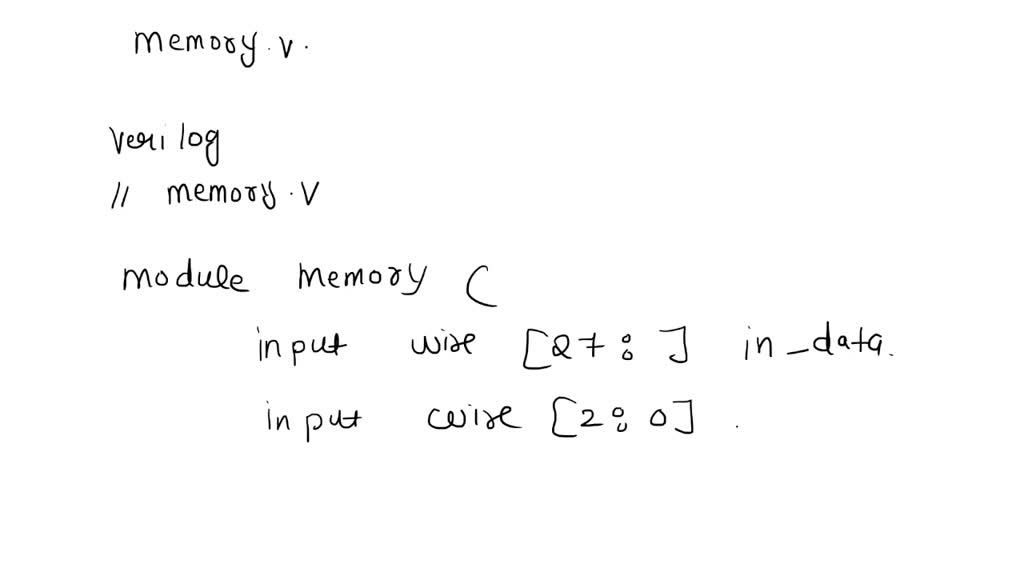 memory.v.
verilog
// memory.v
module memory (
input wire [27: ] in_data.
input wire [2:0] .